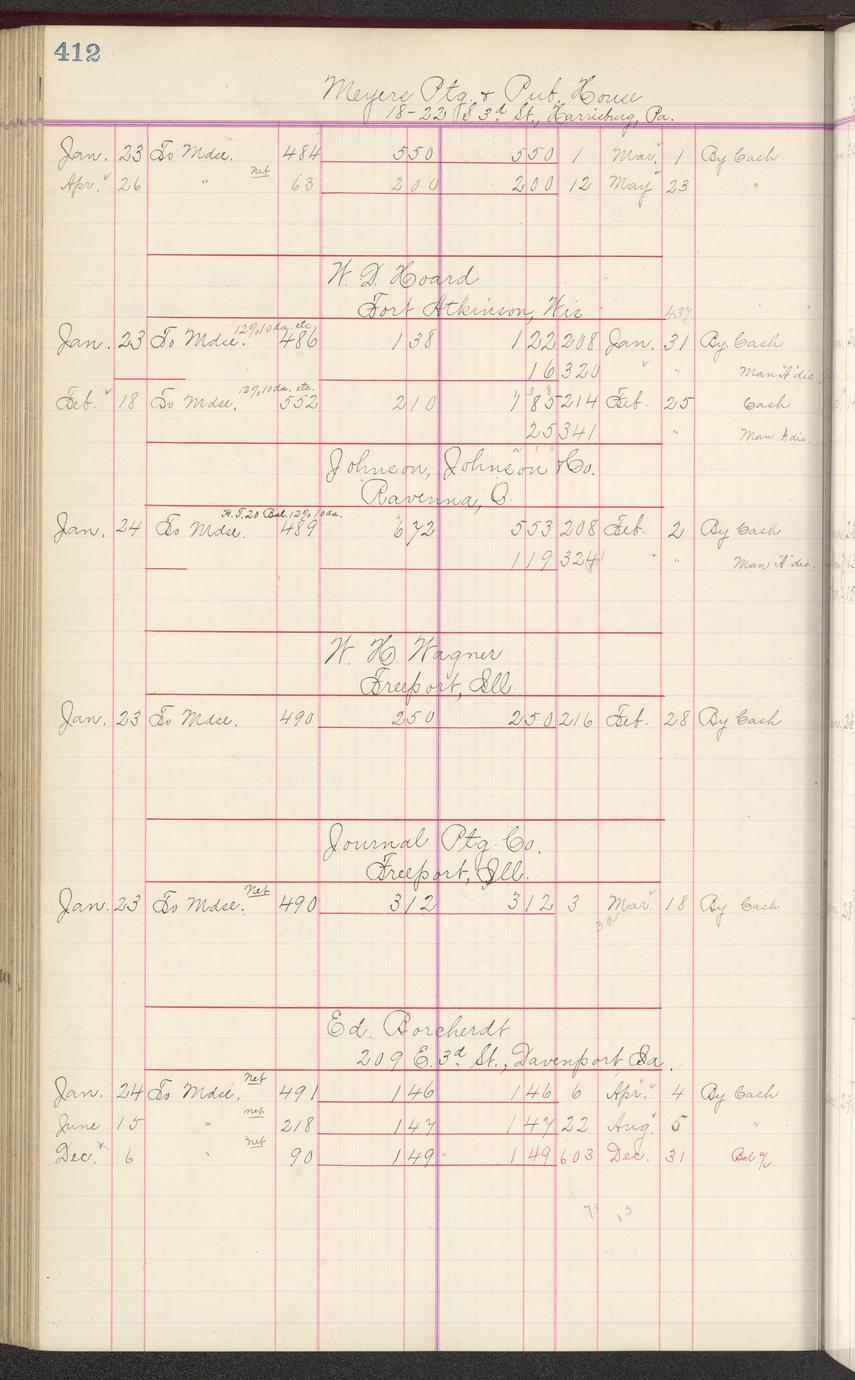 412
Meyers Ptg. & Pub. House
18-22 S 3d St., Harrisburg, Pa.
Jan. 23 To Mdse. 484 5 50 5 50 1 Mar. 1 By Cash
Apr. 26 " net 63 2 00 2 00 12 May 23 "
W. D. Hoard
Fort Atkinson, Wis 437
Jan. 23 To Mdse. 12% 10 da. etc. 486 1 38 1 22 208 Jan. 31 By Cash
16 320 " " Man "A" dis.
Feb. 18 To Mdse. 12% 10 da. etc. 552 2 10 1 85 214 Feb. 25 Cash
25 341 " Man A dis.
Johnson, Johnson & Co.
Ravenna, O.
Jan. 24 To Mdse. H.T. 20 Bal. 12% 10 da. 489 6 72 5 53 208 Feb. 2 By Cash
1 19 324 " " Man "A" dis.
W. H. Wagner
Freeport, Ill
Jan. 23 To Mdse. 490 2 50 2 50 216 Feb. 28 By Cash
Journal Ptg. Co.
Freeport, Ill.
Jan. 23 To Mdse. Net 490 3 12 3 12 3 Mar. 18 By Cash
Ed. Borcherdt
209 E. 3d St., Davenport Ia.
Jan. 24 To Mdse. net 491 1 46 1 46 6 Apr. 4 By Cash
June 15 " net 218 1 47 1 47 22 Aug. 5 "
Dec. 6 " net 90 1 49 1 49 603 Dec. 31 Bal. %